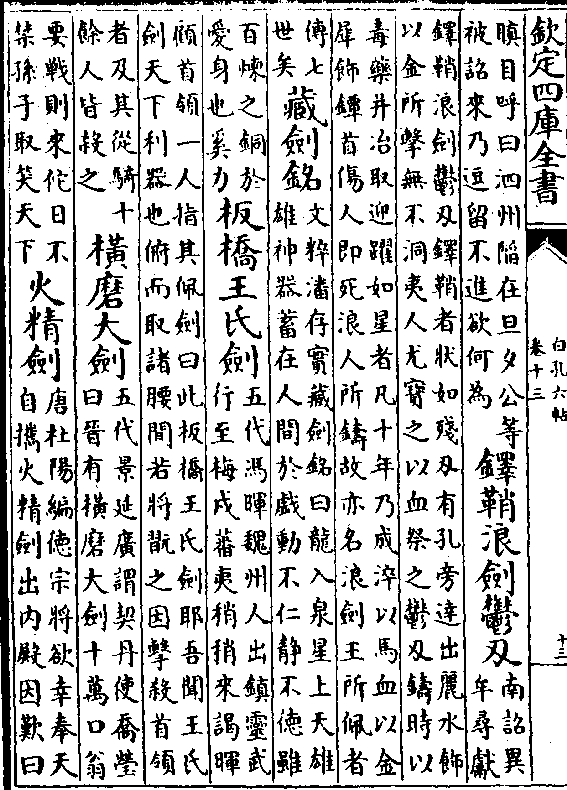 欽定四庫全書
白孔六帖
卷十三
十三
瞋目呼曰泗州陷在旦夕公等
被詔來乃逗留不進欲何為
鐸鞘浪劍鬱刃
南詔異
牟尋獻
鐸鞘浪劍鬱刃鐸鞘者狀如殘刃有孔旁達出麗水飾
以金所擊無不洞夷人尤寶之以血祭之鬱刃鑄時以
毒藥并冶取迎躍如星者凡十年乃成淬以馬血以金
犀飾鐔首傷人即死浪人所鑄故亦名浪劍王所佩者
傳七
世矣
藏劍銘
文粹潘存實藏劍銘曰龍入泉星上天雄
雄神器蓄在人間於戲動不仁靜不德雖
百煉之銅於
愛身也奚力
板橋王氏劍
五代馮暉魏州人出鎮靈武
行至梅戍蕃夷稍稍來謁暉
顧首領一人指其佩劍曰此板橋王氏劍耶吾聞王氏
劍天下利器也俯而取諸腰間若將翫之因擊殺首領
者及其從騎十
餘人皆殺之
橫磨大劍
五代景延廣謂契丹使喬瑩
曰晉有橫磨大劍十萬口翁
要戰則來佗日不
禁孫子取笑天下
火精劍
唐杜陽編德宗將欲幸奉天
自攜火精劍出内殿因歎曰